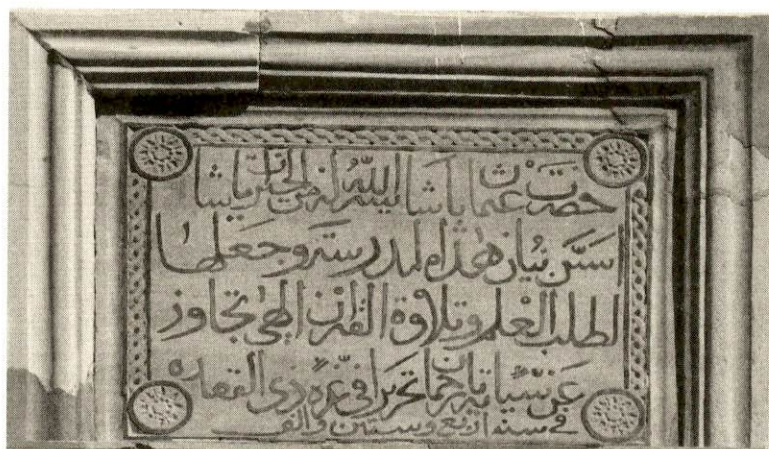 حضرت عثمان پاشا يسر الله له من الخير ما يشا
اسس بنيان هذه المدرسة وجعلها
لطلب العلم وتلاوة القران الهى تجاوز
عن سيأته تحريرا في غرة ذى القعده
في سنه اربع وستين والف